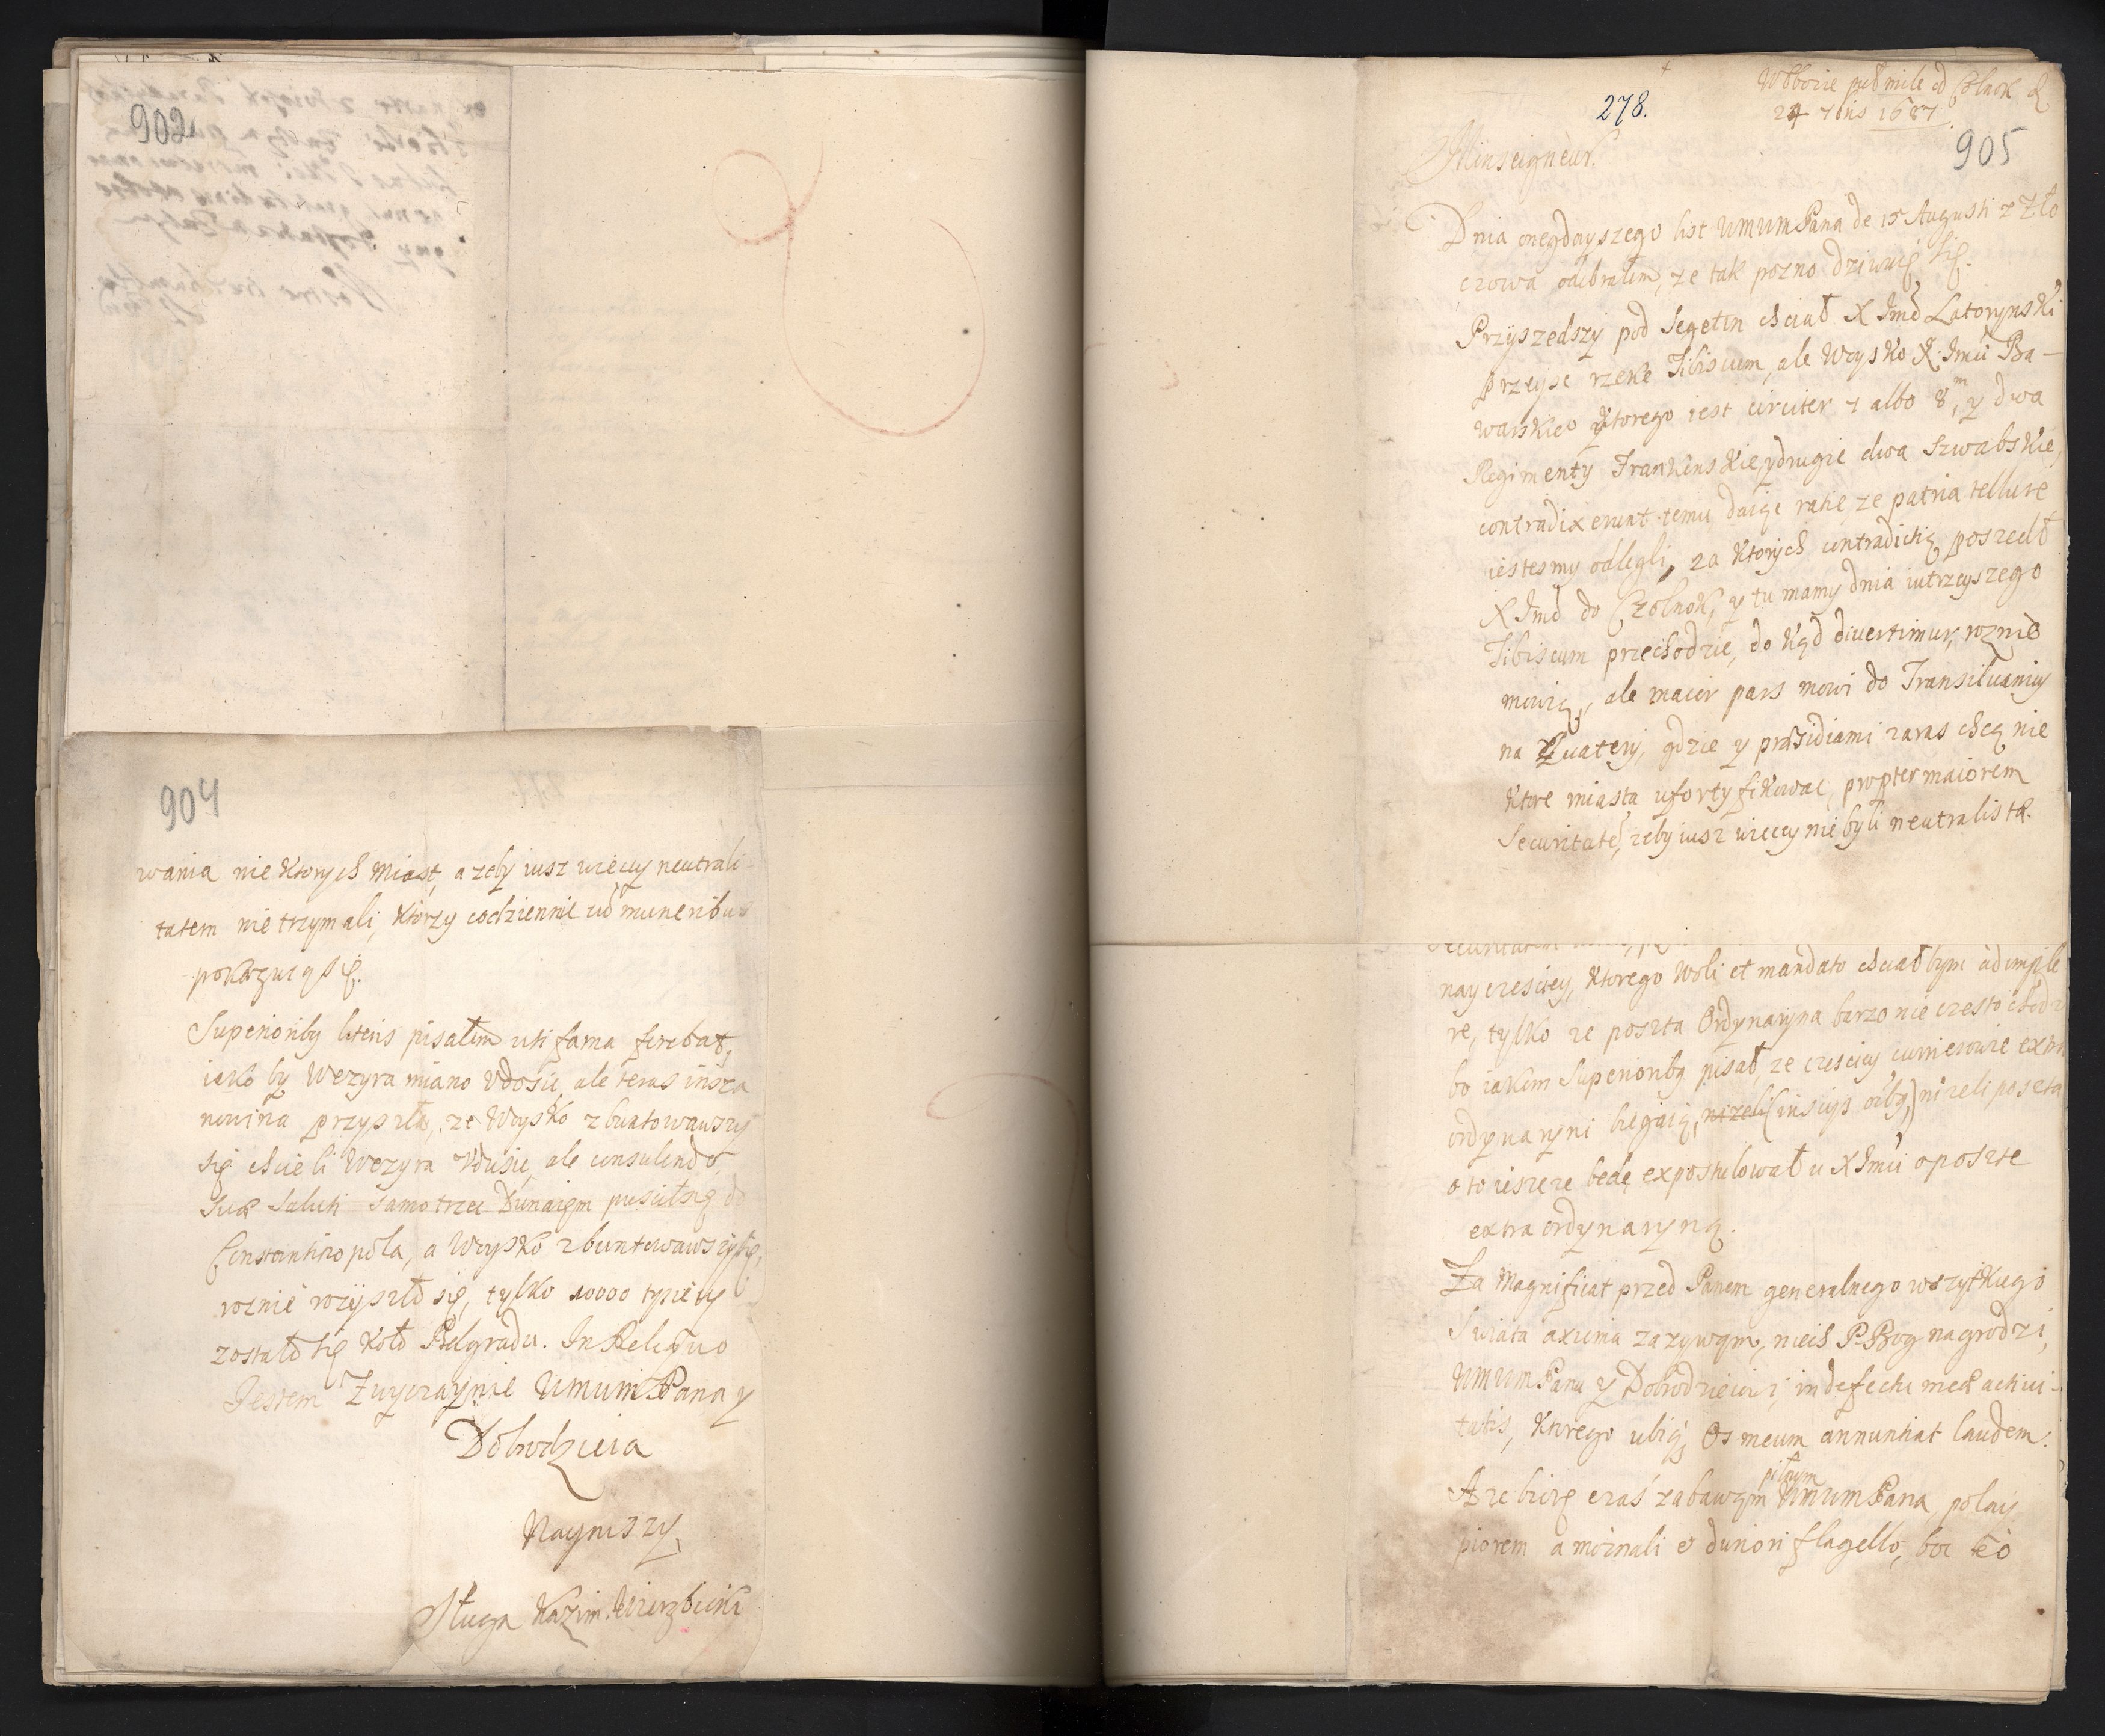 902
904
wania niektorych Miast, a zeby iusz wiecey neutrali-
tatem nie trzymali, ktorzy codziennie cū muneribus
pokazuią się.
Superioriby literis pisałem uti fama ferebat,
iako by Wezyra miano Vdosic, ale teras insza
nowina przyszła, ze Woysko zbuntowawszy
się chcieli Wezyra Vdusic, ale consulendo
suæ saluti samotrzec Dunaiem puscił się do
Constantinopola, a Woysko zbuntowawszy się,
roznie rozyszło się, tylko 10000 tysiecy
zostało się koło Belgradu. In Reliquo
Iestem Zwyczaynie UMumPana y
Dobrodzieia
Nayniszy
Sługa Kazim. Wierzbicki
278.
W obozie puł mile od Czolnok d
24 7bris 1687
905
Minseigneur.
Dnia onegdayszego list UMumPana de 15 Augusti z Zło
czowa odebralem, ze tak pozno dziwuię się.
Przyszedszy pod Segetin chciał X Jmć Latorynski
przeysc rzeke Tibiscum, ale Woysko X. Jmći Ba-
warskieo ktorego iest circiter 7 albo 8m, y dwa
Regimenty Frankenskie, y drugie dwa Szwabskie,
contradixerunt temu, daiąc ratie ze patria tellure
iestesmy odlegli, za ktorych contradictią poszedł
X Jmć do Czolnok, y tu mamy dnia iutrzeyszego
Tibiscum przechodzic, do kąd divertimur, roznie
mowią, ale maior pars mowi do Transilvaniey
na kwatery, gdzie y præsidiami zaras chcą nie
ktore miasta ufortyfikowac, propter maiorem
Securitatē, zeby iusz wiecey nie byli neutralistæ.
nayczesciey, ktorego woli et mandato chciałbym adimple
re, tylko ze poszta Ordynaryna barzo nie czesto chodzi
bo iakem Superioriby pisał, ze czesciey curierowie extra
ordynaryni biegaią, nizeli (insciis oiby) nizeli poszta
o to ieszcze bede expostulował u X Jmći o poszte
extraordynaryną.
Za Magnificat przed Panem generalnego wszytkiego
Swiata axuma zazywam, niech P. Bog nagrodzi,
UMumPanu y Dobrodzieiowi, in defectu meæ activi-
tatis, ktorego ubią, Os meum annuntiat laudem.
A ze biorę czas zabawąm pismym UMumPana, polaią
piorem a moznali et duriori flagello, boc to